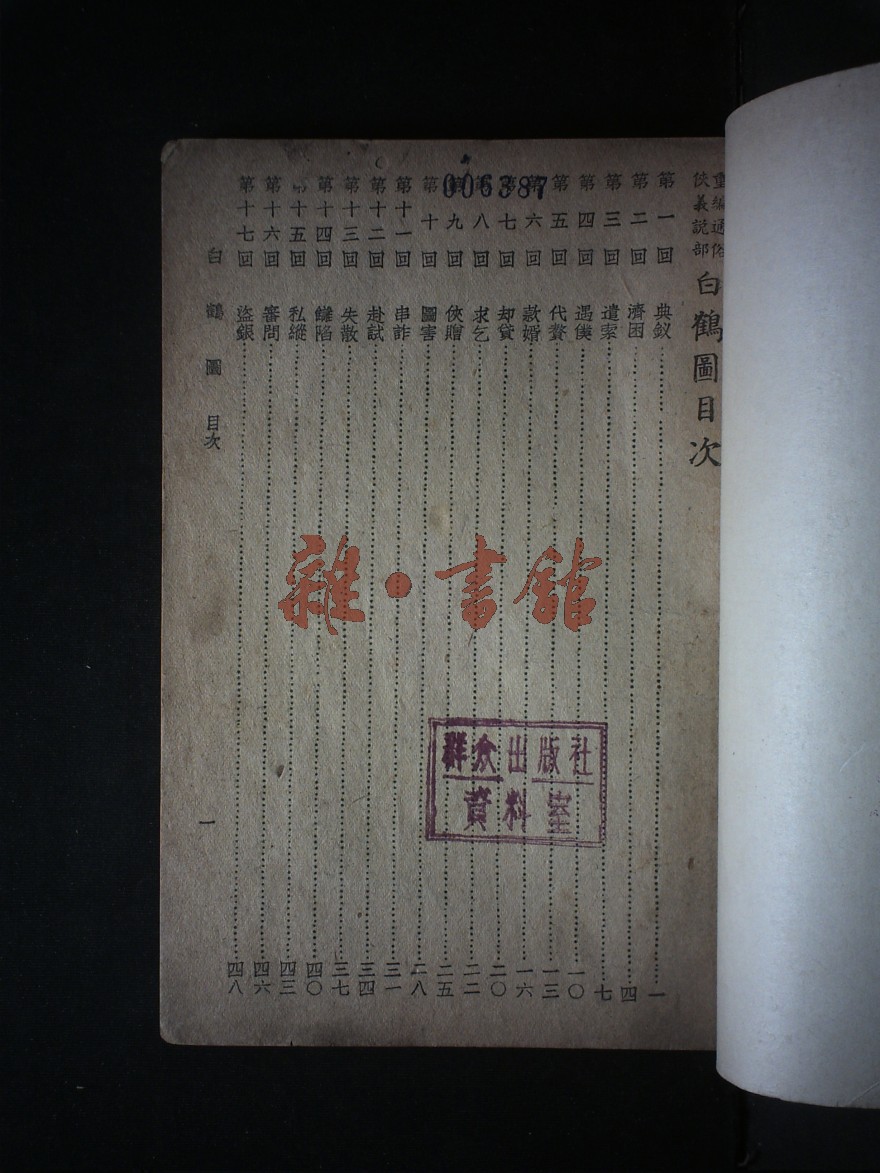 重編通俗
俠義說部
白鶴圖目次
第一回 典釵 一
第二回 濟困 四
第三回 遣索 七
第四回 遇僕 一〇
第五回 代贅 一三
第六回 款婚 一六
第七回 却貸 二〇
第八回 求乞 二二
第九回 俠贈 二五
第十回 圖害 二八
第十一回 串詐 三一
第十二回 赴試 三四
第十三回 失散 三七
第十四回 讎陷 四〇
第十五回 私縱 四三
第十六回 審問 四六
第十七回 盜銀 四八
白鶴圖 目次
一
006387
雜·書館
群众出版社
資料室